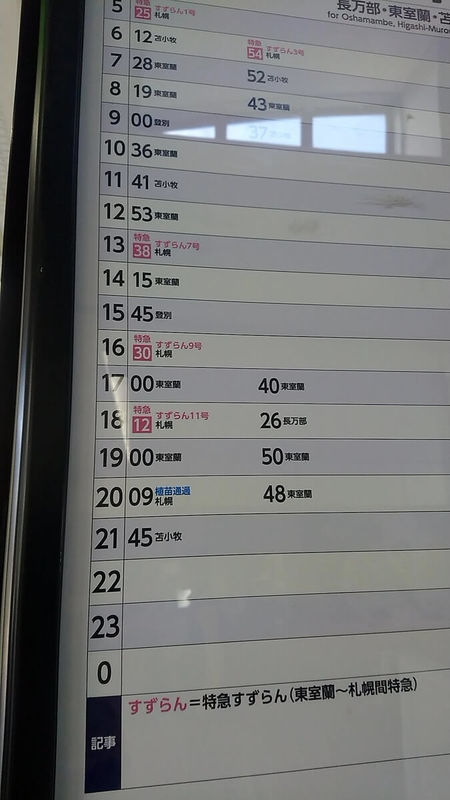 長万部・東室蘭・苫
for Oshamambe, Higashi-Muro
5 特急 25 すずらん1号 札幌
6 12 苫小牧 特急 54 すずらん3号 札幌
7 28 東室蘭 52 苫小牧
8 19 東室蘭 43 東室蘭
9 00 登別 37
10 36 東室蘭
11 41 苫小牧
12 53 東室蘭
13 特急 38 すずらん7号 札幌
14 15 東室蘭
15 45 登別
16 特急 30 すずらん9号 札幌
17 00 東室蘭 40 東室蘭
18 特急 12 すずらん11号 札幌 26 長万部
19 00 東室蘭 50 東室蘭
20 09 植苗通過 札幌 48 東室蘭
21 45 苫小牧
22
23
0
記事 すずらん=特急すずらん(東室蘭~札幌間特急)